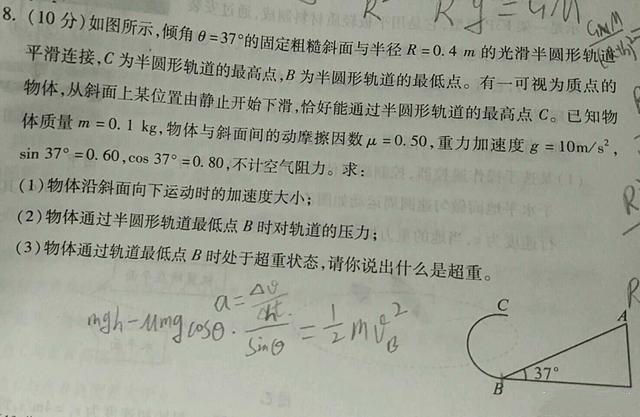 R² R g = GM
8. (10 分)如图所示,倾角 θ=37°的固定粗糙斜面与半径 R=0.4 m 的光滑半圆形轨道
平滑连接, C 为半圆形轨道的最高点, B 为半圆形轨道的最低点。有一可视为质点的
物体,从斜面上某位置由静止开始下滑,恰好能通过半圆形轨道的最高点 C。已知物
体质量 m=0.1 kg,物体与斜面间的动摩擦因数 μ=0.50,重力加速度 g=10m/s²,
sin 37°=0.60,cos 37°=0.80,不计空气阻力。求:
(1)物体沿斜面向下运动时的加速度大小;
(2)物体通过半圆形轨道最低点 B 时对轨道的压力;
(3)物体通过轨道最低点 B 时处于超重状态,请你说出什么是超重。
a=Δv/Δt
mgh-μmgcosθ·h/sinθ=1/2mv_B²
C
A
B
37°